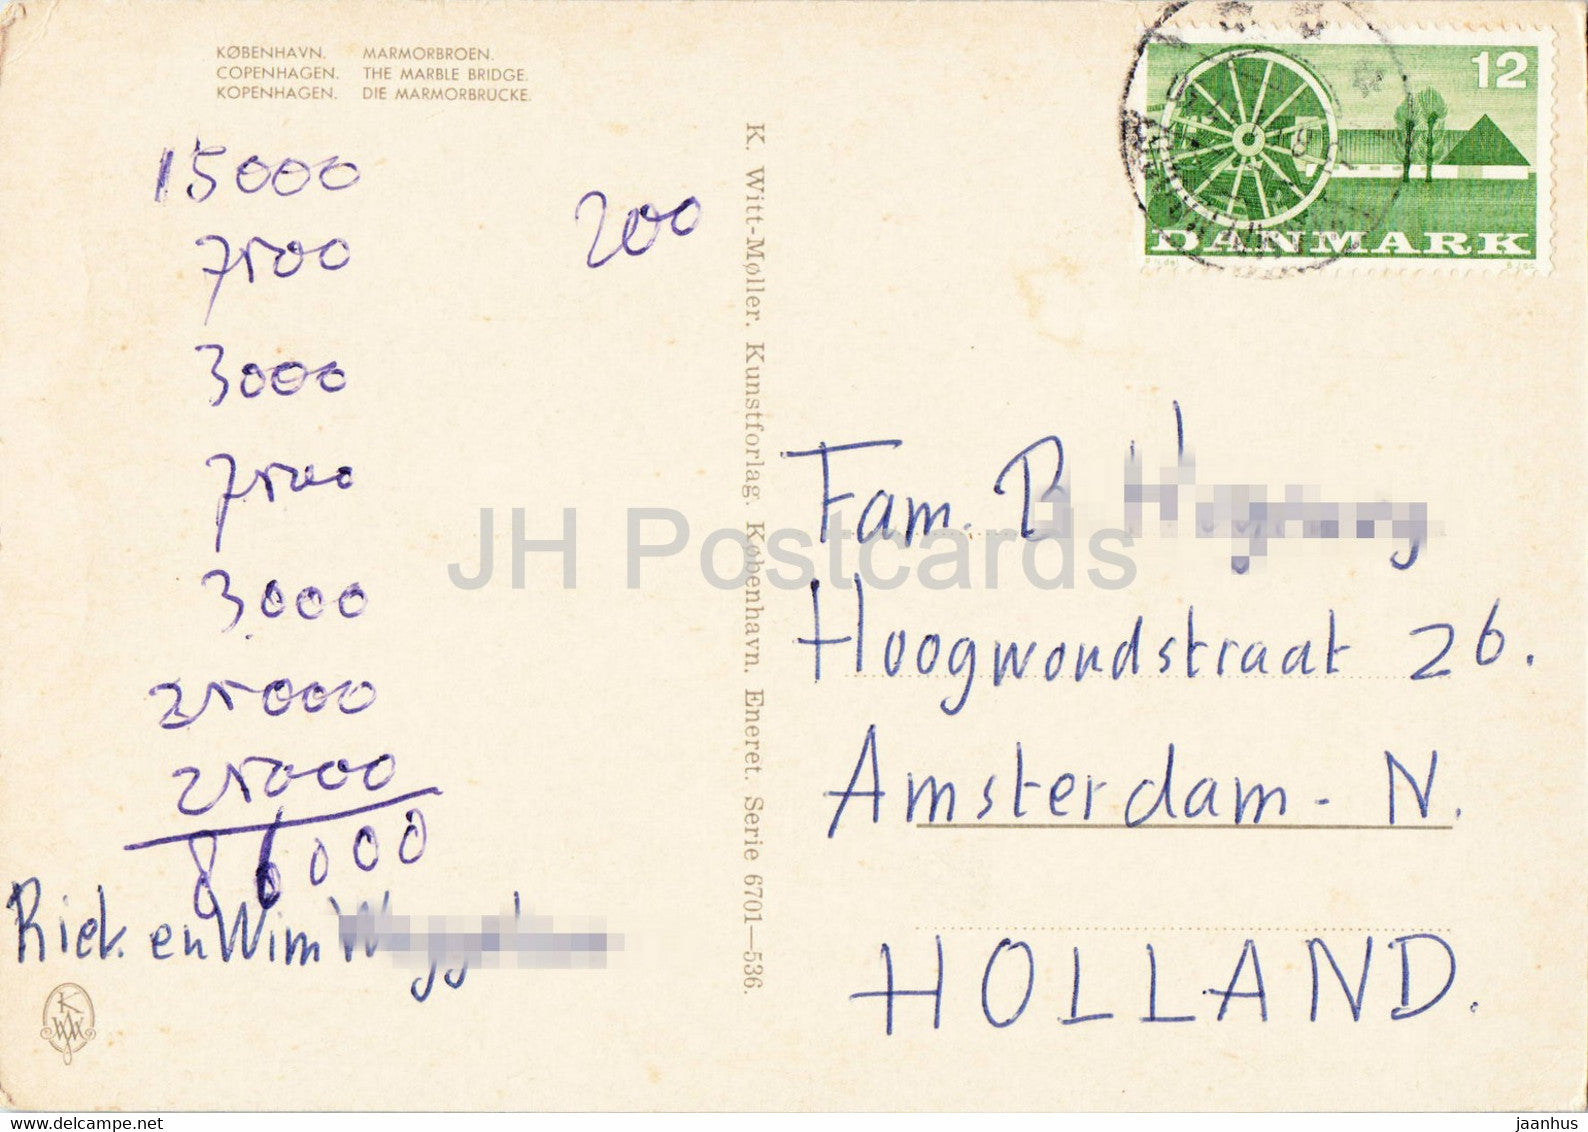 KØBENHAVN. MARMORBROEN.
COPENHAGEN. THE MARBLE BRIDGE.
KOPENHAGEN. DIE MARMORBRÜCKE.
15000
7500
200
3000
7500
3000
25000
25000
86000
Riek. en Wim
K. Witt-Møller. Kunstforlag. København. Eneret. Serie 6701—536.
12
DANMARK
Fam. B
Hoogwoudstraat 26.
Amsterdam - N.
HOLLAND.
JH Postcards
www.delcampe.net
jaanhus